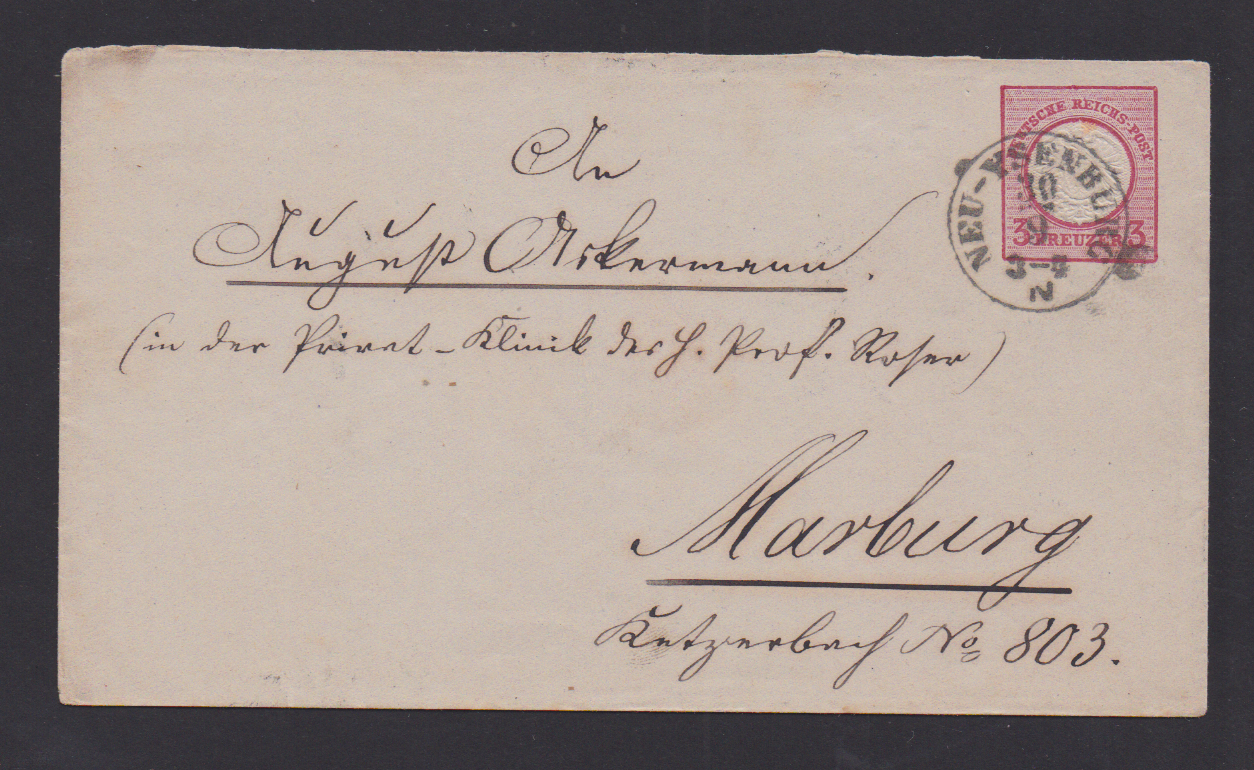 DEUTSCHE REICHS-POST
3 KREUZER 3
NEU-YSENBURG
30
9
3-4
N
An
August Ackermann.
(in der Privat-Klinik des H. Prof. Roser)
Marburg
Ketzerbach No 803.